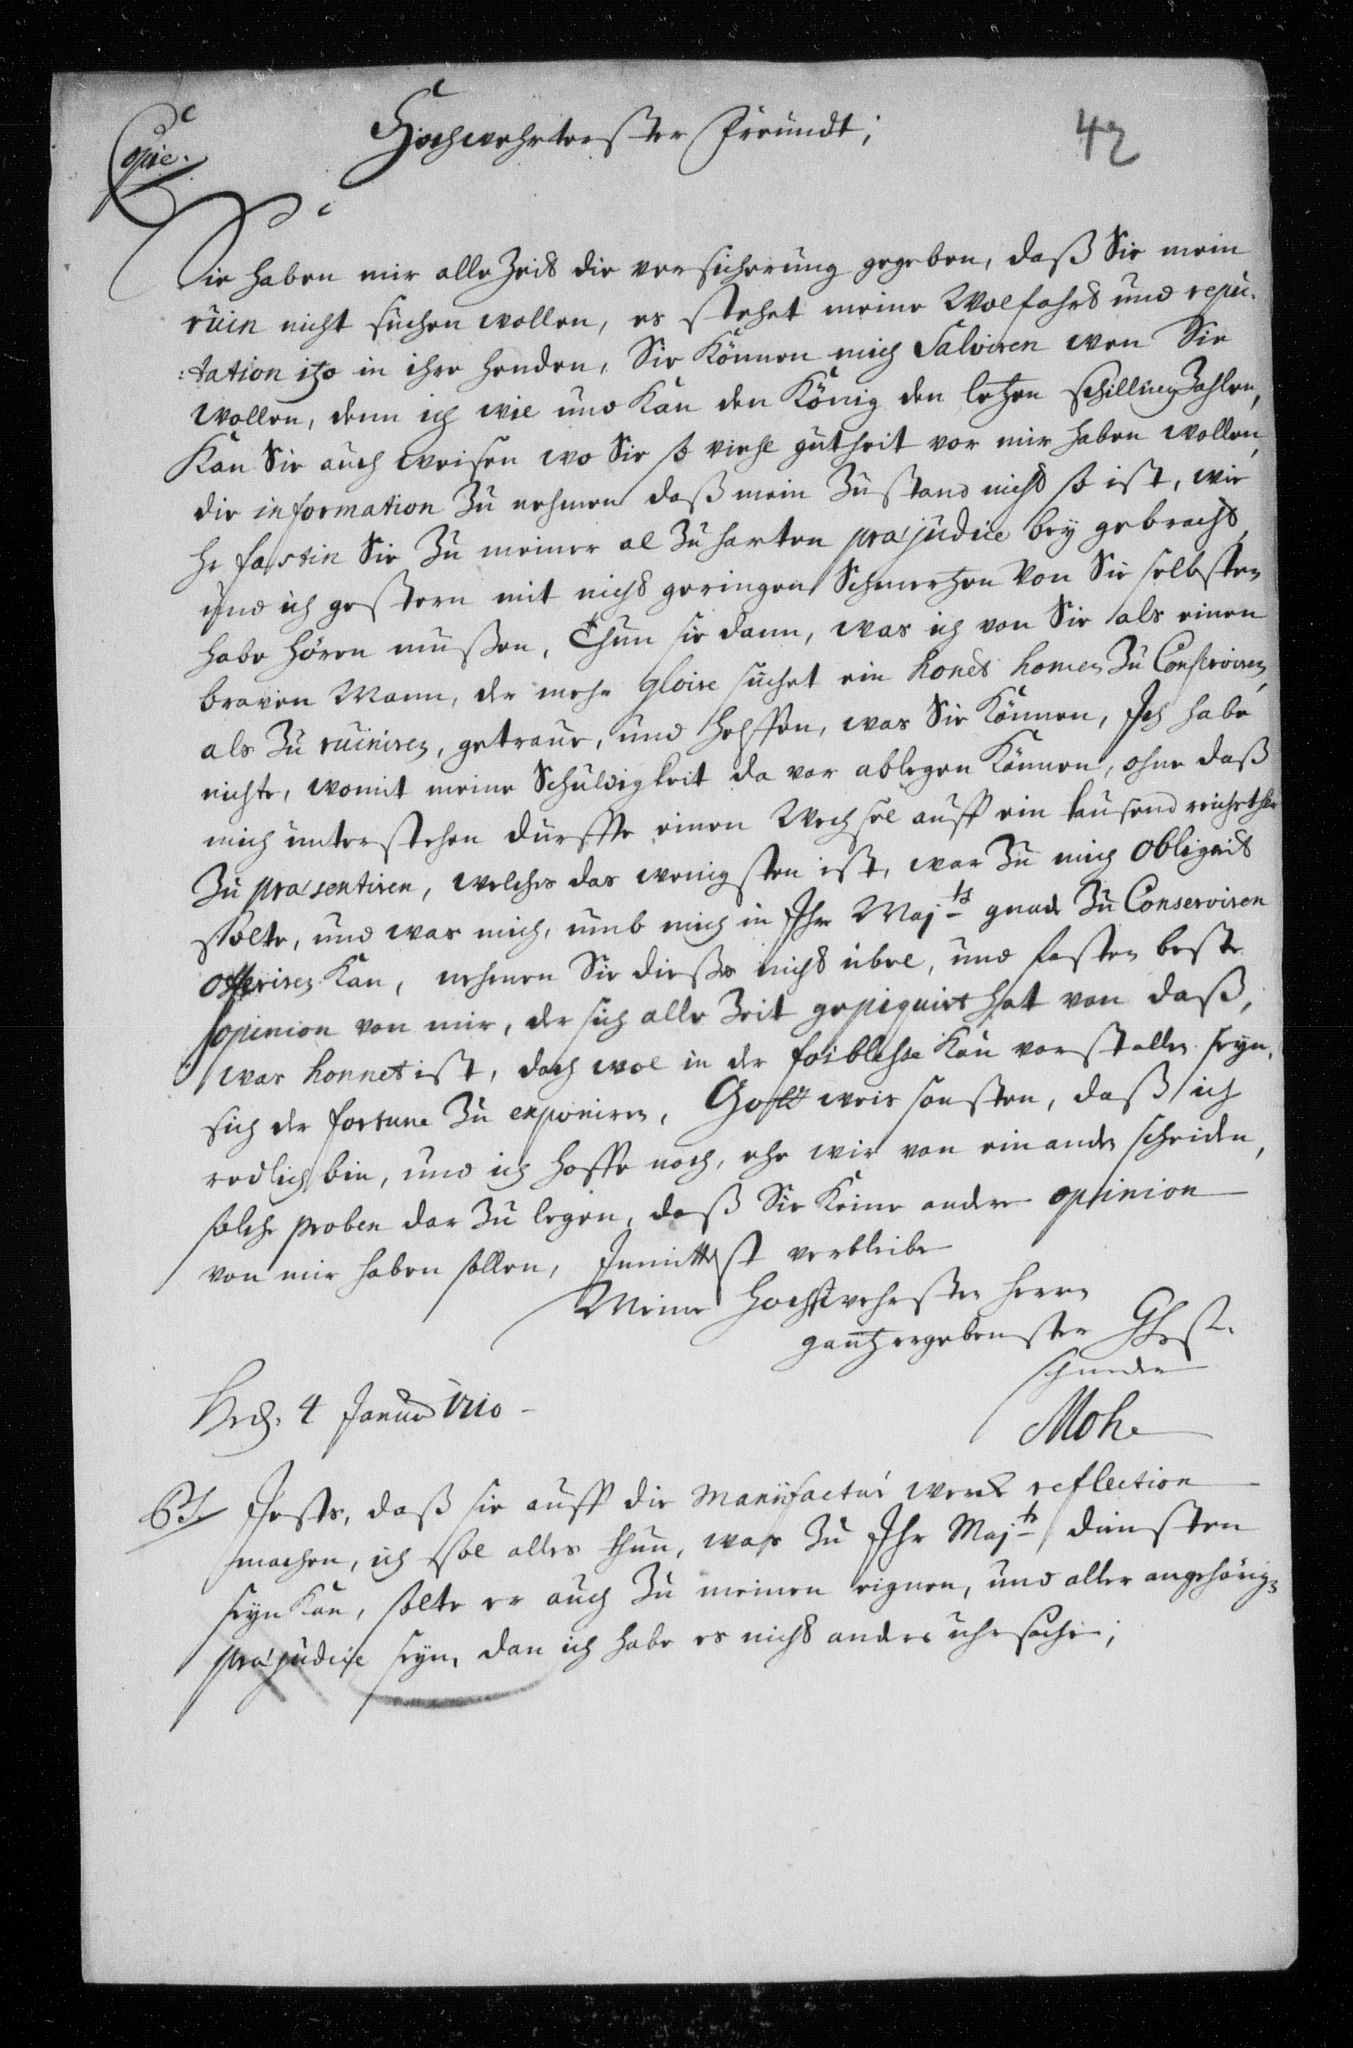 Copie.
Hochwehrtester Freundt;
42
Sie haben mir alle Zeit die versicherung gegeben, daß Sie mein
ruin nicht suchen wollen, es stehet meine Wolfahrt und repu-
:tation itzo in ihre henden, Sie Können mich Salviren wen Sie
wollen, denn ich wil und Kan den König den letzen schilling Zahlen,
Kan Sie auch weisen wo Sie so viehl gutheit vor mir haben wollen,
die information Zu nehmen daß mein Zustand nicht so ist, wie
Hr fastin Sie Zu meiner al Zu harten præjudice bey gebracht,
und ich gestern mit nicht geringen Schmertzen von Sie selbsten
habe hören mußen, Thun sie dann, was ich von Sie als einen
braven Mann, der mehr gloire suchet ein honet homen Zu Conserviren,
als Zu ruiniren, getraue, und helffen, was Sie Können, Ich habe
nichts, womit meine Schuldigkeit da vor ablegen Können, ohne daß
mich unterstehen durffte einen Wechsel auff ein tausend reichsthlr
Zu præsentiren, welches das wenigsten ist, war Zu mich obligirt
solte, und was mich, umb mich in Ihr Maj:ts gnade Zu Conserviren
offeriren Kan, nehmen Sie dießes nicht übel, und fasten beste
opinion von mir, der sich alle Zeit gepiquirt hat von daß,
was honnet ist, doch wol in der foiblesse Kan verstallen seyn,
sich der fortune Zu exponiren, Gott weis sonsten, daß ich
redlich bin, und ich hoffe noch, ehe wir von einander scheiden,
solche proben dar Zu legen, daß Sie Keine andre opinion
von mir haben sollen, Inmittelst verbleibe
Meine Hochstwehrsten Herrn
gantz ergebenster
Mohr
4 Januar 1710
PS
daß sie auff die Manufactur werck reflection
machen, ich sol alles thun, was Zu Ihr Maj:ts diensten
seyn Kan, solte er auch Zu meinen eignen, und aller angehörig
præjudice seyn, dan ich habe es nicht anders uhrsache;